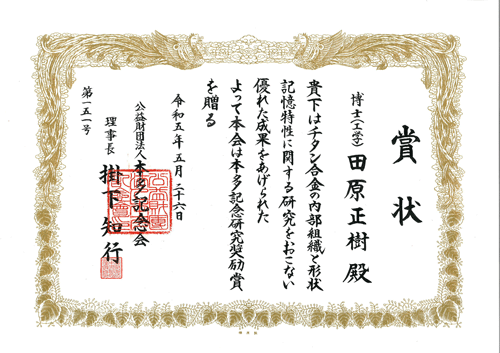 賞状
博士(工学) 田原正樹 殿
貴下はチタン合金の内部組織と形状
記憶特性に関する研究をおこない
優れた成果をあげられた
よって本会は本多記念研究奨励賞
を贈る
令和五年五月二十六日
公益財団法人本多記念会
理事長 掛下知行
第一五一号